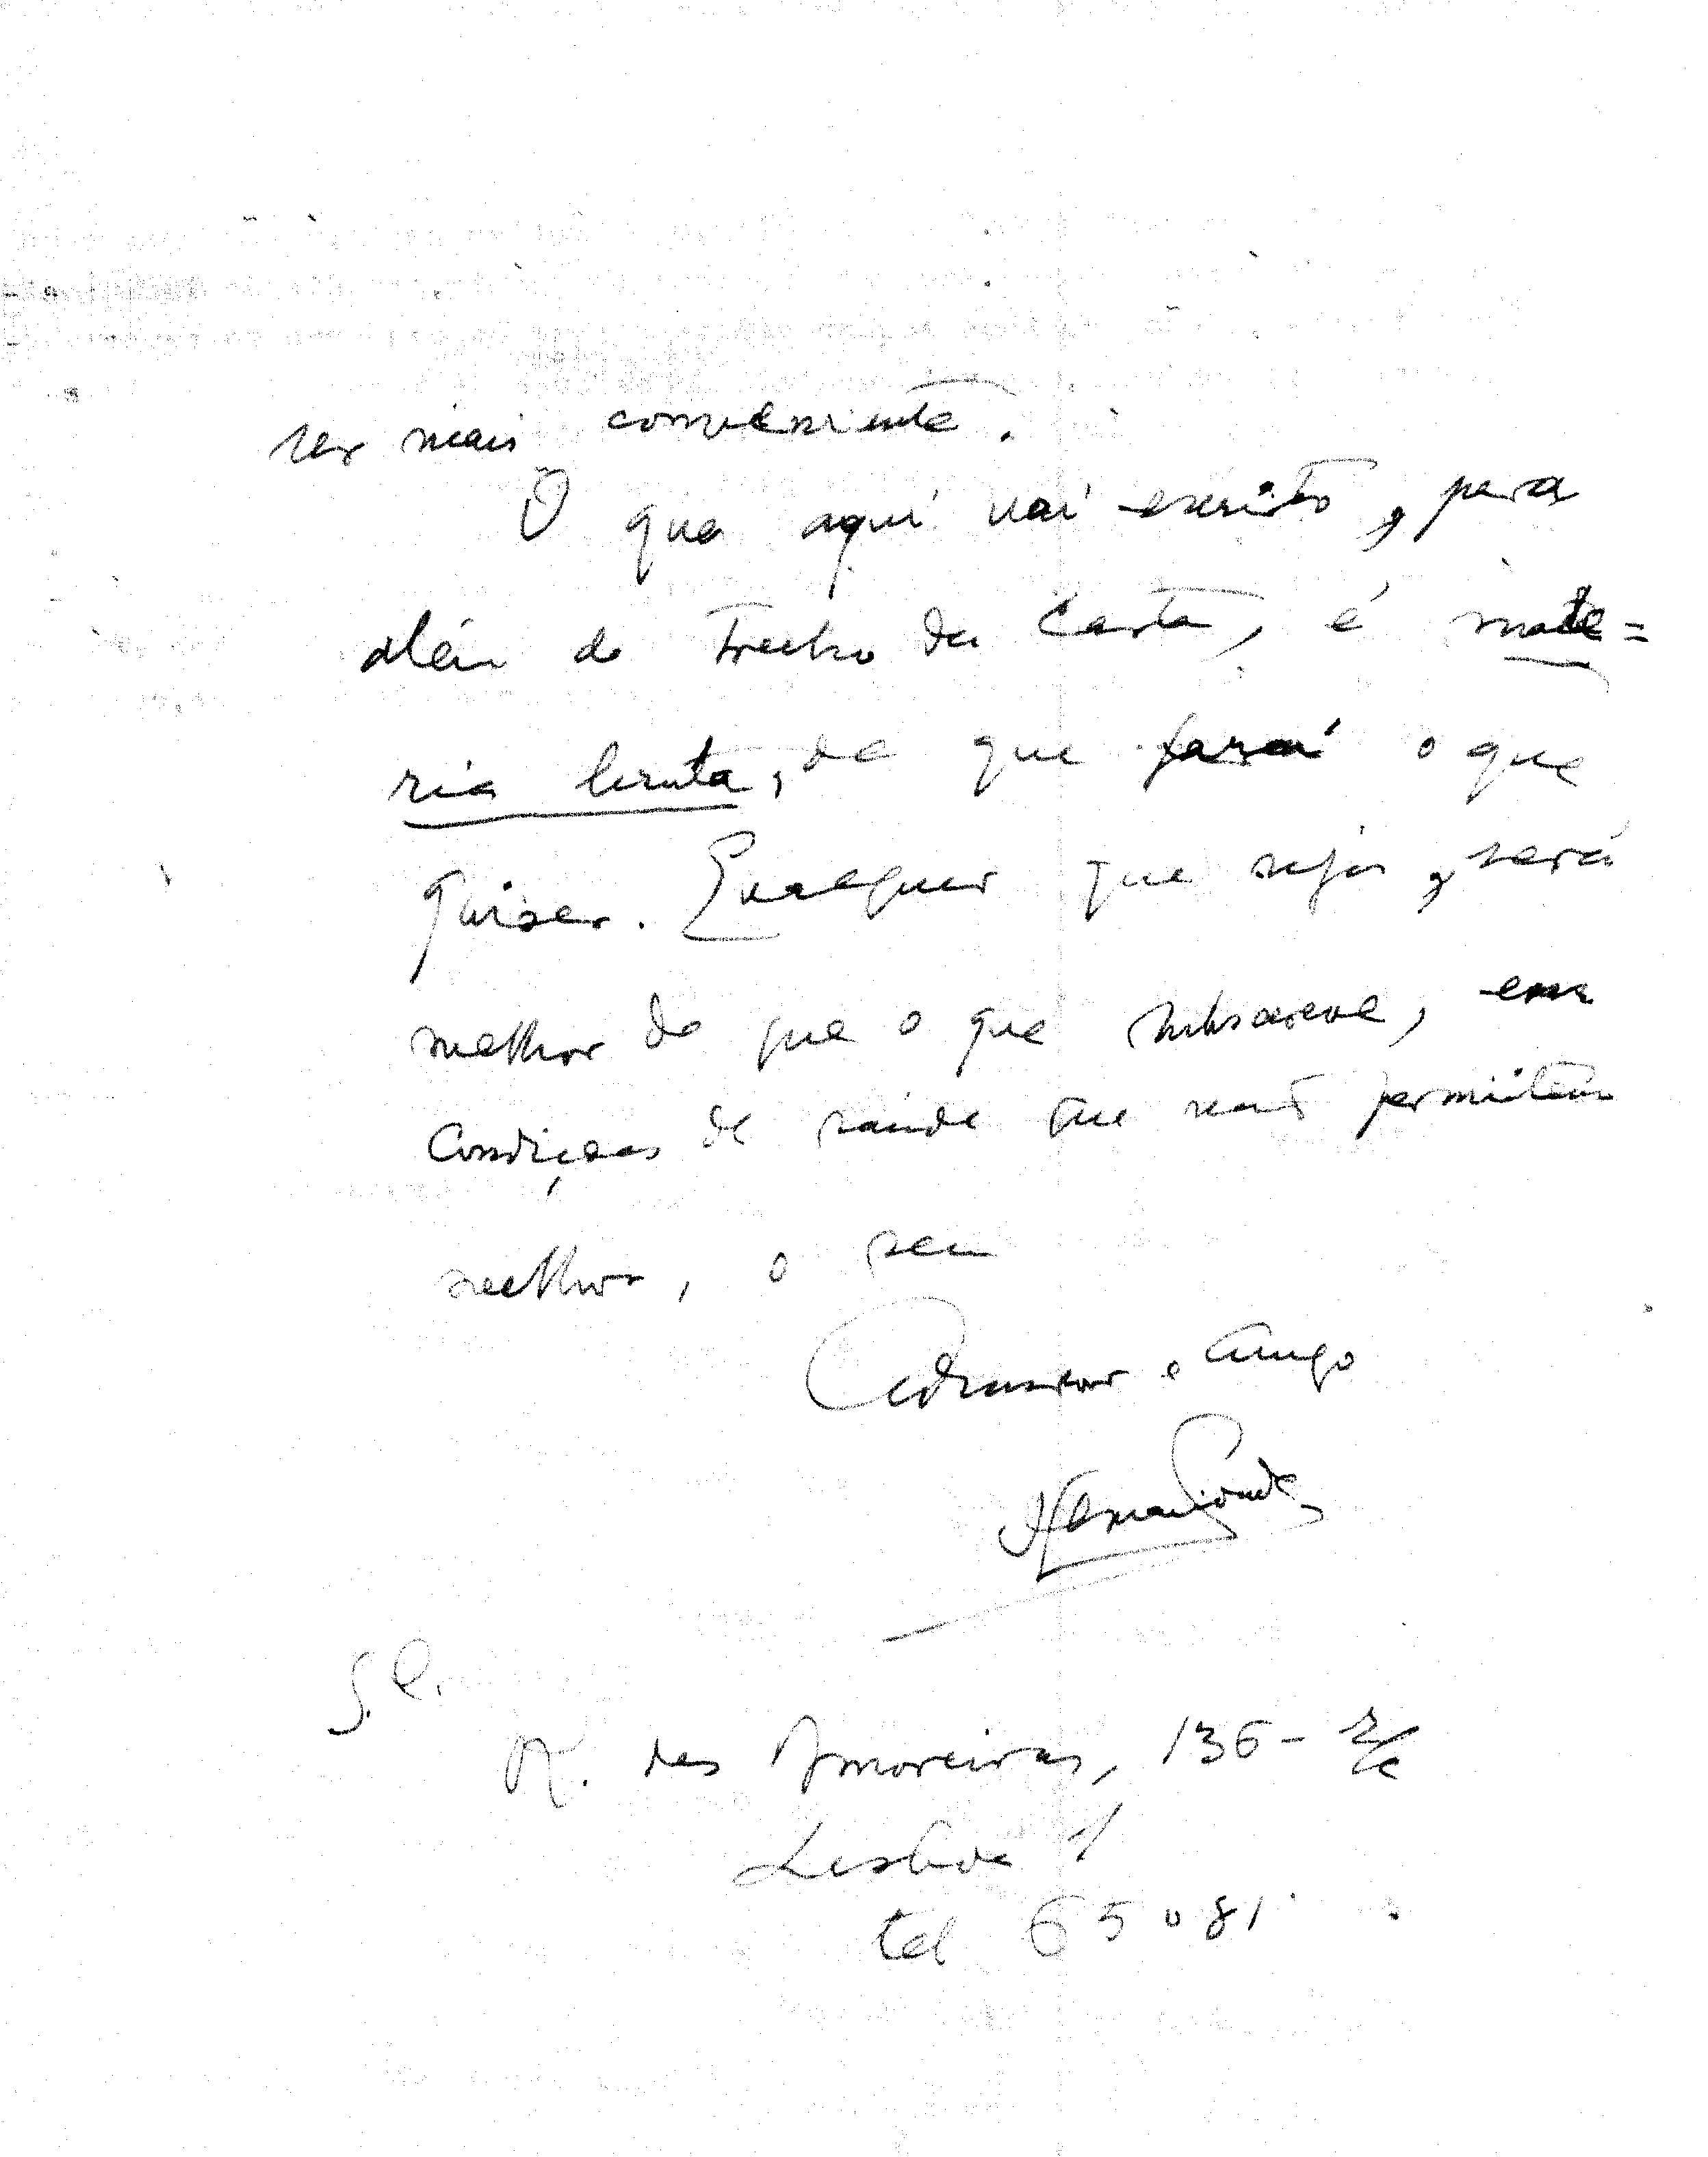 ser mais conveniente.
O que aqui vai escrito, para
além do trecho da carta, é maté=
ria bruta, de que fará o que
quiser. Qualquer que seja, será
melhor do que o que subscreve, em
condições de saúde que não permitem
melhor, o seu
Admirador e amigo
Hernani Cidade
S. C.
R. das Amoreiras, 136 - r/c
Lisboa 1
tel 65081